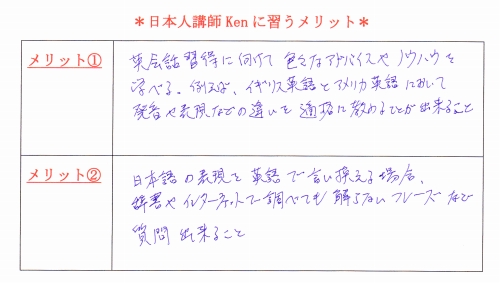 ＊日本人講師 Ken に習うメリット＊
メリット①
英会話習得に向けて色々なアドバイスやノウハウを
学べる。例えば、イギリス英語とアメリカ英語において
発音や表現などの違いを適格に教わることが出来ること
メリット②
日本語の表現を英語で言い換える場合、
辞書やインターネットで調べても解らないフレーズなど
質問出来ること